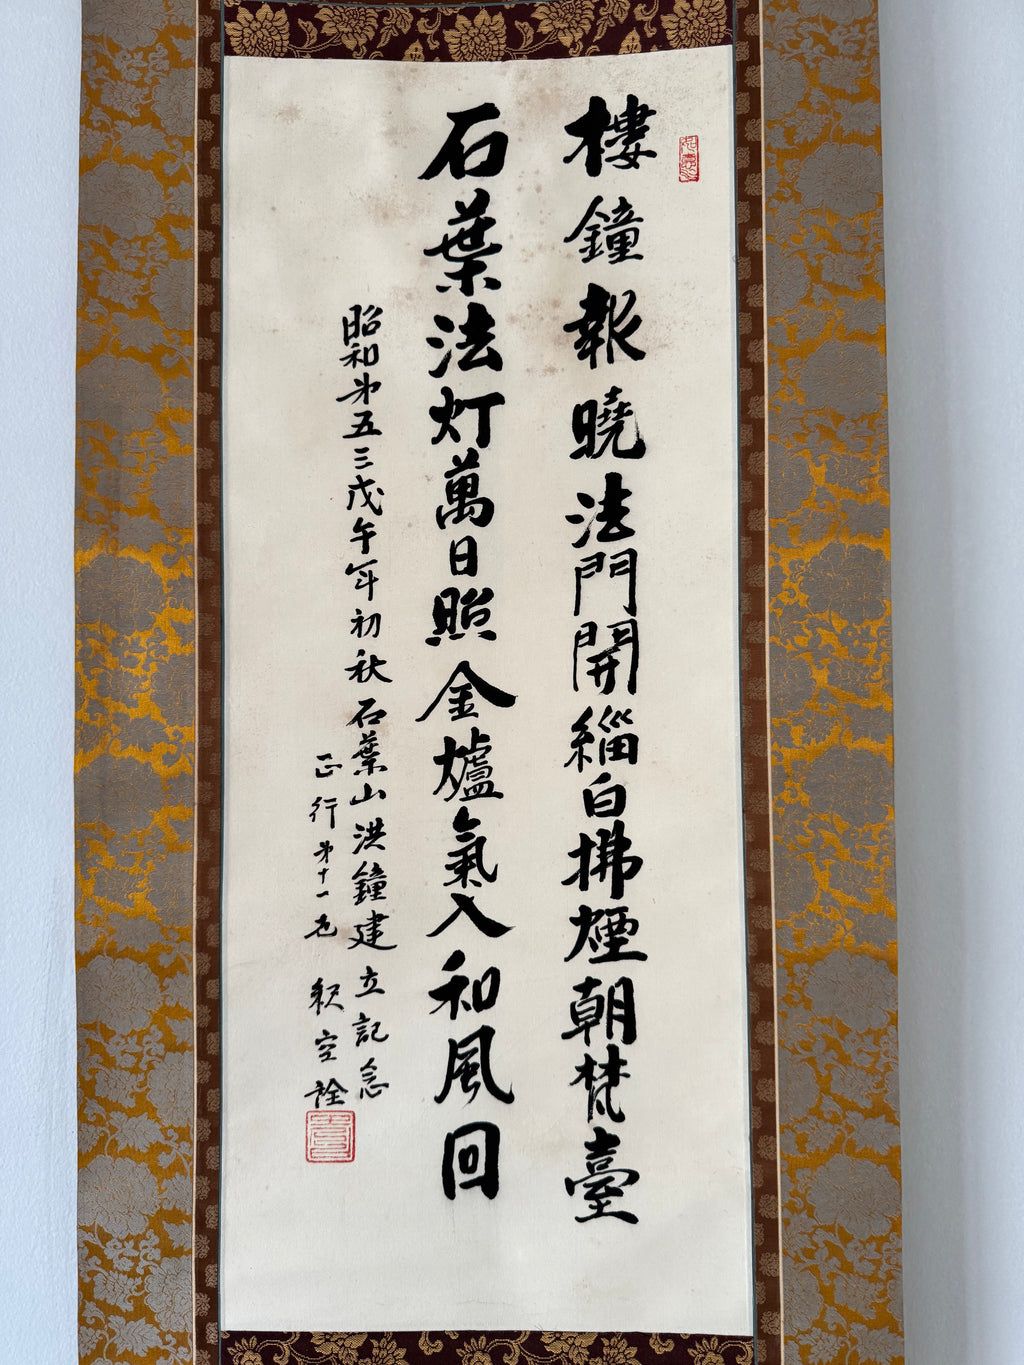 樓鐘報曉法門開緇白拂煙朝梵臺
石葉法灯萬日照金爐氣入和風回
昭和第五三戊午年初秋石葉山洪鐘建立記念
正行第十一世釈空詮